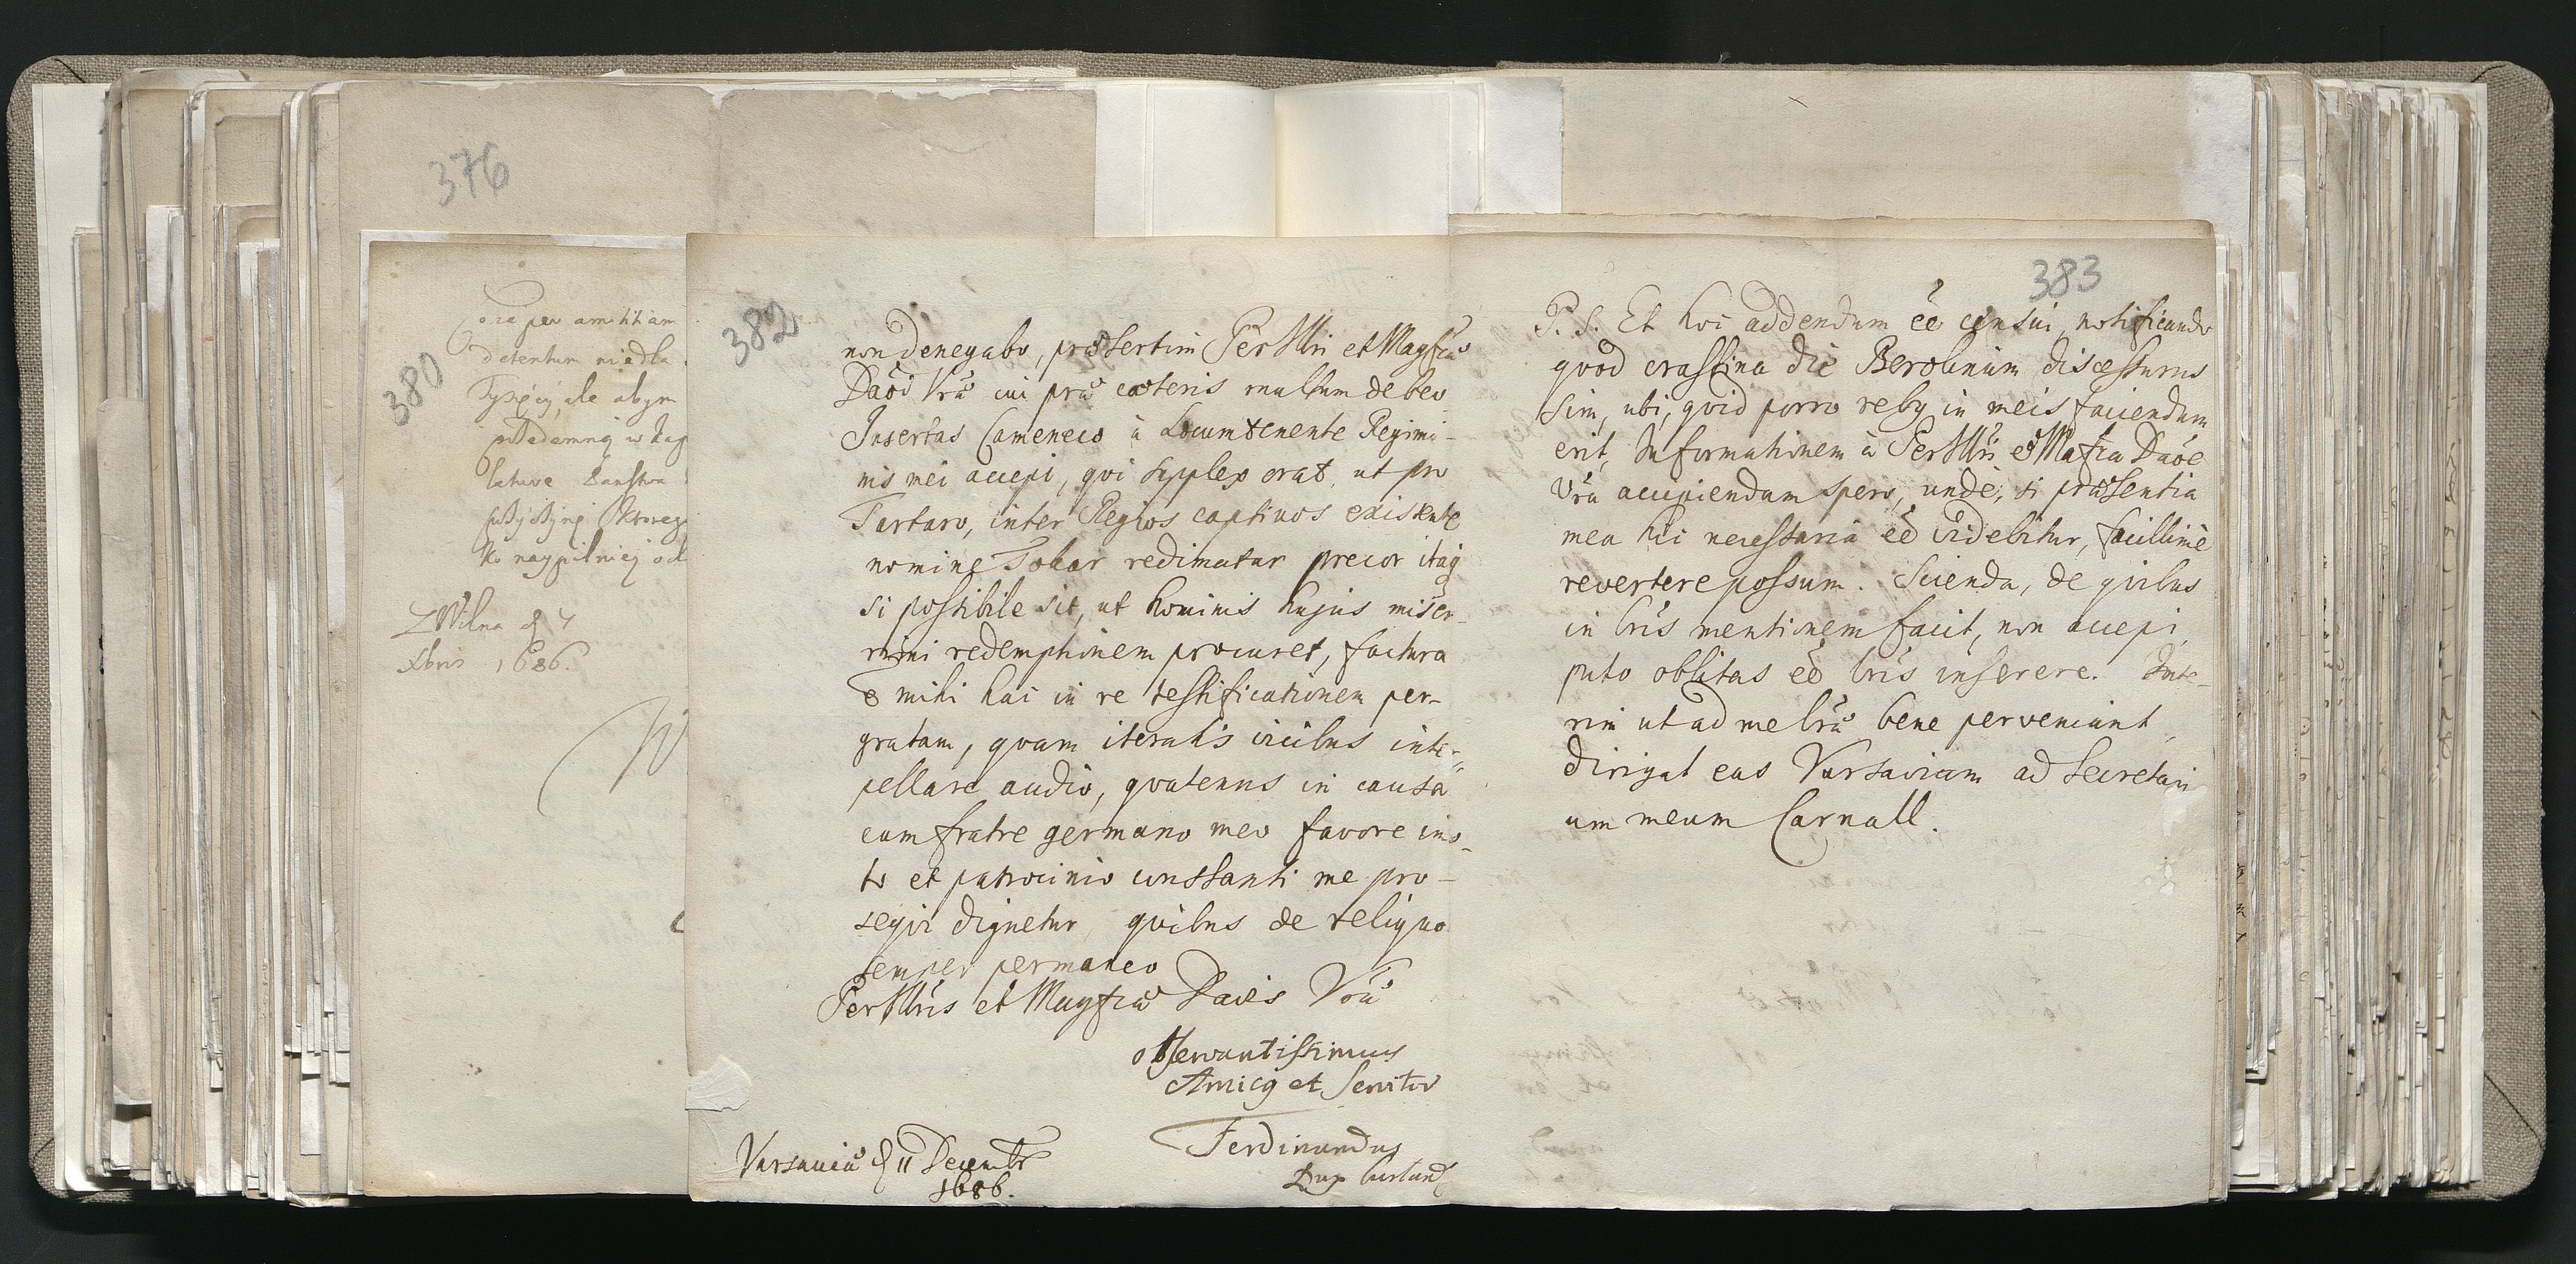 376
380
per amititiam
detentum niedba
Tysięcy, ale abym
latwe Państwa
ko naypilniey od
ZWilna d 7
Xbris 1686.
382
non denegabo, præsertim PerIllri et Magfcæ
Daõi Vræ cui præ cæteris multum debeo
Insertas Cameneco à Locumtenente Regimi-
nis mei accepi, qvi supplex orat, ut pro
Tartaro, inter Regios captivos existente
nomine Tokar redimatur precor itaq
si possibile sit, ut hominis hujus miser-
rimi redemptionem procuret, factura
e mihi hac in re testificationem per-
gratam, qvam iteratis vicibus inter-
pellare audio, qvatenus in causa
cum fratre germano meo favore ins-
to et patrocinio constanti me pro-
seqvi dignetur, qvibus de reliquo
semper permaneo
PerIllris et Magfcæ Daõis Vræ
observantissimus
Amicq et Servitor
Varsaviæ d 11 Decembr
1686.
Ferdinandus
Dux Curland
383
P. S. Et hoc addendum eẽ censui, notificando
qvod crastina die Berolinum discessurus
sim, ubi, qvid porro rebq in meis faciendum
erit, Informationem à PerIllri et Mafca Daõe
Vrã accipiendam spero, unde, si præsentia
mea hic necessaria eẽ videbitur, facillime
revertere possum. Scienda, de qvibus
in lris mentionem facit, non accepi,
puto oblitas eẽ lris inserere. Inte-
rim ut ad me lræ bene perveniant,
dirigat eas Varsaviam ad Secretari
um meum Carnall.